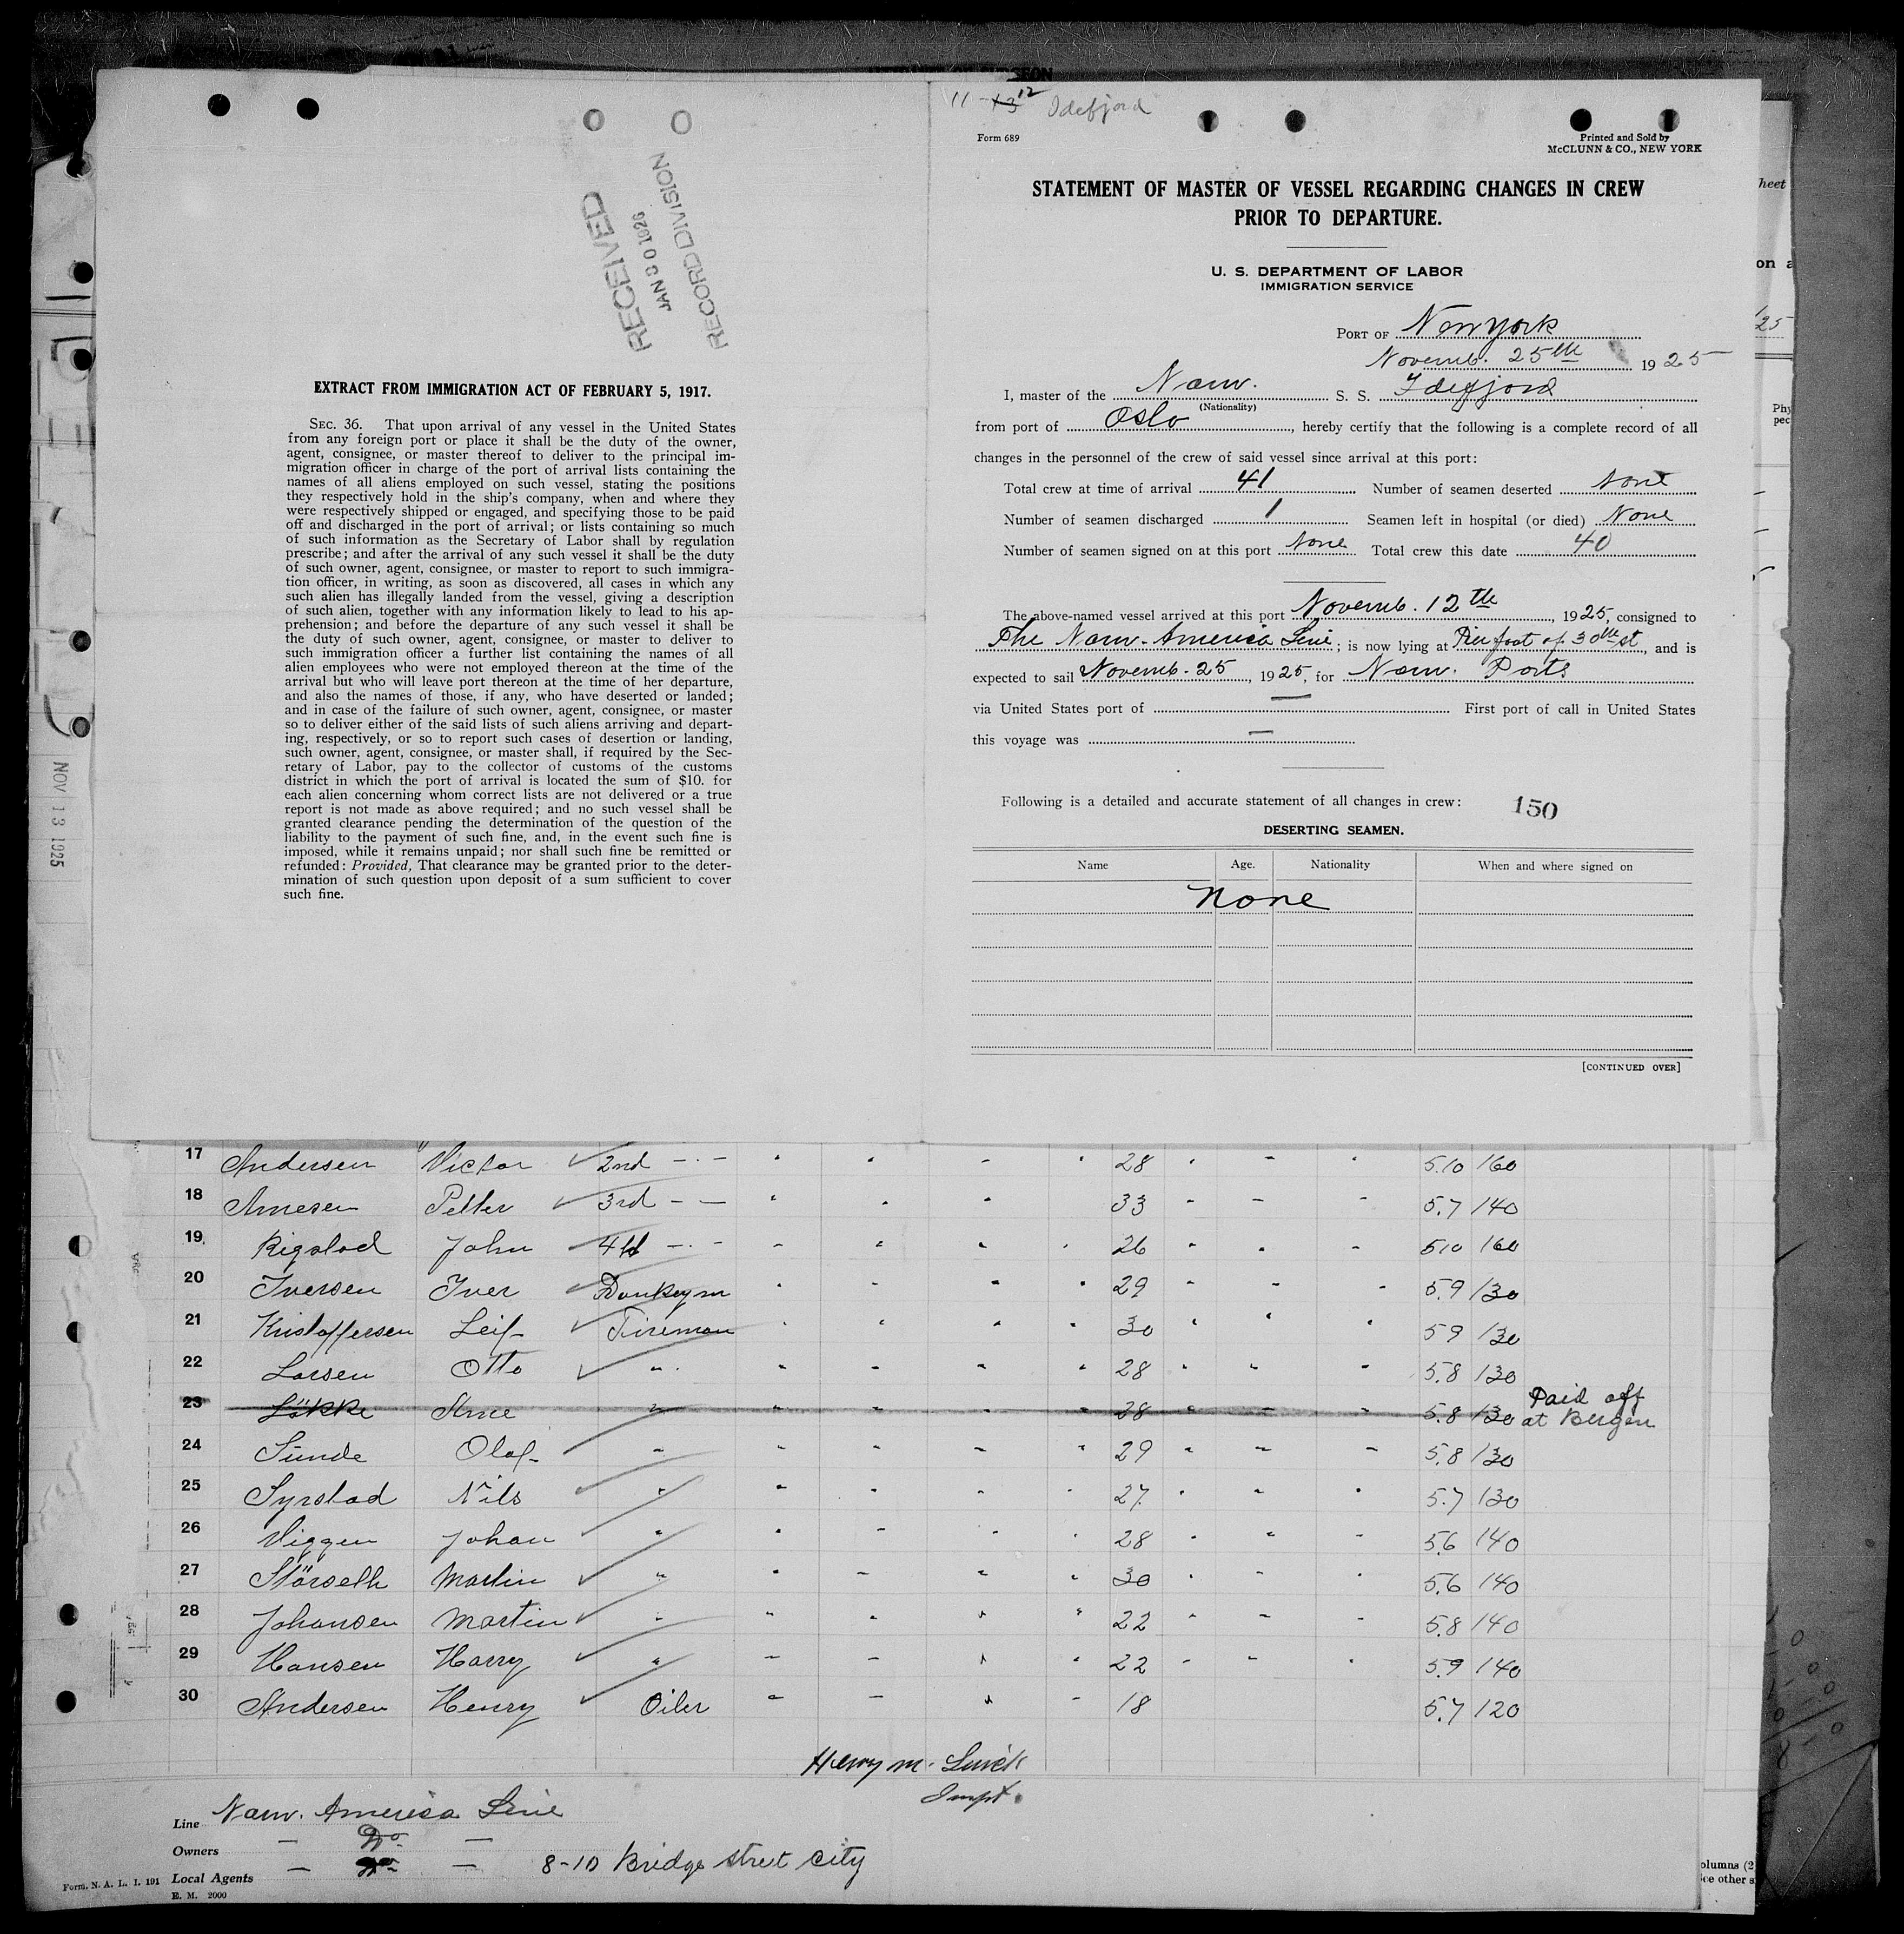 11-13 12 Idefjord
Form 689
Printed and Sold by
McCLUNN & CO., NEW YORK
STATEMENT OF MASTER OF VESSEL REGARDING CHANGES IN CREW
PRIOR TO DEPARTURE.
U. S. DEPARTMENT OF LABOR
IMMIGRATION SERVICE
PORT OF New York
Novemb. 25th 1925
I, master of the Norw. S. S. Idefjord
(Nationality)
from port of Oslo, hereby certify that the following is a complete record of all
changes in the personnel of the crew of said vessel since arrival at this port:
Total crew at time of arrival 41 Number of seamen deserted None
Number of seamen discharged 1 Seamen left in hospital (or died) None
Number of seamen signed on at this port None Total crew this date 40
The above-named vessel arrived at this port Novemb. 12th, 1925, consigned to
The Norw. America Line; is now lying at Pier foot of 30th st, and is
expected to sail Novemb. 25, 1925, for Norw. Ports
via United States port of — First port of call in United States
this voyage was —
Following is a detailed and accurate statement of all changes in crew: 150
DESERTING SEAMEN.
Name Age. Nationality When and where signed on
None
[CONTINUED OVER]
RECEIVED
JAN 30 1926
RECORD DIVISION
EXTRACT FROM IMMIGRATION ACT OF FEBRUARY 5, 1917.
SEC. 36. That upon arrival of any vessel in the United States
from any foreign port or place it shall be the duty of the owner,
agent, consignee, or master thereof to deliver to the principal im-
migration officer in charge of the port of arrival lists containing the
names of all aliens employed on such vessel, stating the positions
they respectively hold in the ship's company, when and where they
were respectively shipped or engaged, and specifying those to be paid
off and discharged in the port of arrival; or lists containing so much
of such information as the Secretary of Labor shall by regulation
prescribe; and after the arrival of any such vessel it shall be the duty
of such owner, agent, consignee, or master to report to such immigra-
tion officer, in writing, as soon as discovered, all cases in which any
such alien has illegally landed from the vessel, giving a description
of such alien, together with any information likely to lead to his ap-
prehension; and before the departure of any such vessel it shall be
the duty of such owner, agent, consignee, or master to deliver to
such immigration officer a further list containing the names of all
alien employees who were not employed thereon at the time of the
arrival but who will leave port thereon at the time of her departure,
and also the names of those, if any, who have deserted or landed;
and in case of the failure of such owner, agent, consignee, or master
so to deliver either of the said lists of such aliens arriving and depart-
ing, respectively, or so to report such cases of desertion or landing,
such owner, agent, consignee, or master shall, if required by the Sec-
retary of Labor, pay to the collector of customs of the customs
district in which the port of arrival is located the sum of $10. for
each alien concerning whom correct lists are not delivered or a true
report is not made as above required; and no such vessel shall be
granted clearance pending the determination of the question of the
liability to the payment of such fine, and, in the event such fine is
imposed, while it remains unpaid; nor shall such fine be remitted or
refunded: Provided, That clearance may be granted prior to the deter-
mination of such question upon deposit of a sum sufficient to cover
such fine.
NOV 13 1925
17 Andersen Victor 2nd 28 5.10 160
18 Arnesen Petter 3rd 33 5.7 140
19 Rigstad John 4th 26 5.10 160
20 Iversen Iver Donkeym 29 5.9 130
21 Kristoffersen Leif Fireman 30 5.9 130
22 Larsen Otto " 28 5.8 130
23 Lökke Arne " 28 5.8 130 Paid off
at Bergen
24 Sunde Olaf " 29 5.8 130
25 Syrstad Nils " 27 5.7 130
26 Viggen Johan " 28 5.6 140
27 Störseth Martin " 30 5.6 140
28 Johansen Martin " 22 5.8 140
29 Hansen Harry " 22 5.9 140
30 Andersen Henry Oiler 18 5.7 120
Henry M.
Inspt.
Line Norw. America Line
Owners — Do —
Local Agents — Do — 8-10 Bridge street City
Form. N. A. L. I. 191
E. M. 2000